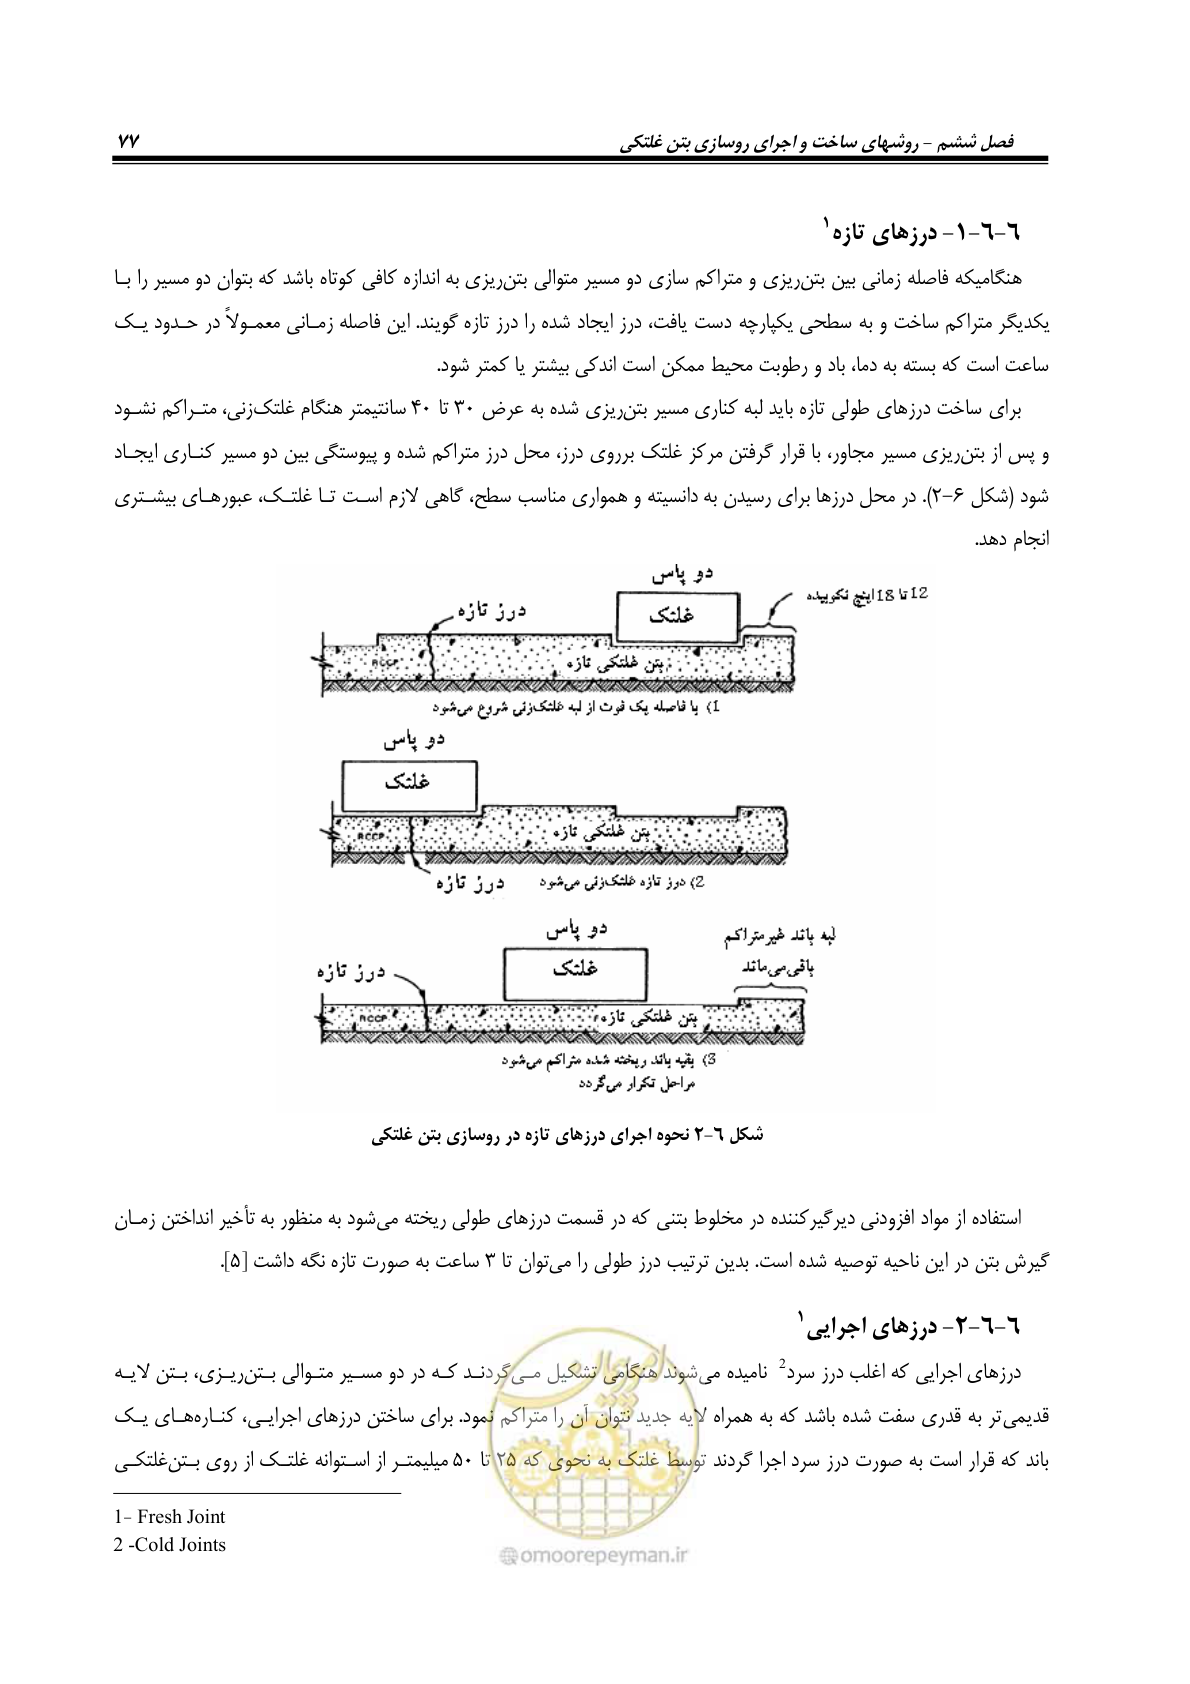 فصل ششم – روشهای ساخت و اجرای روسازی بتن غلتکی ۷۷
۶-۶-۱- درزهای تازه۱
هنگامیکه فاصله زمانی بین بتن‌ریزی و متراکم سازی دو مسیر متوالی بتن‌ریزی به اندازه کافی کوتاه باشد که بتوان دو مسیر را بـا
یکدیگر متراکم ساخت و به سطحی یکپارچه دست یافت، درز ایجاد شده را درز تازه گویند. این فاصله زمـانی معمـولاً در حـدود یـک
ساعت است که بسته به دما، باد و رطوبت محیط ممکن است اندکی بیشتر یا کمتر شود.
برای ساخت درزهای طولی تازه باید لبه کناری مسیر بتن‌ریزی شده به عرض ۳۰ تا ۴۰ سانتیمتر هنگام غلتک‌زنی، متـراکم نشـود
و پس از بتن‌ریزی مسیر مجاور، با قرار گرفتن مرکز غلتک برروی درز، محل درز متراکم شده و پیوستگی بین دو مسیر کنـاری ایجـاد
شود (شکل ۶-۲). در محل درزها برای رسیدن به دانسیته و همواری مناسب سطح، گاهی لازم اسـت تـا غلتـک، عبورهـای بیشـتری
انجام دهد.
دو پاس
12 تا 18 اینچ نکوبیده
غلتک
درز تازه
RCCP
بتن غلتکی تازه
1) با فاصله یک فوت از لبه غلتک‌زنی شروع می‌شود
دو پاس
غلتک
بتن غلتکی تازه
RCCP
درز تازه
2) درز تازه غلتک‌زنی می‌شود
دو پاس
لبه باند غیرمتراکم
باقی می‌ماند
غلتک
درز تازه
RCCP
بتن غلتکی تازه
3) بقیه باند ریخته شده متراکم می‌شود
مراحل تکرار می‌گردد
شکل ۶-۲ نحوه اجرای درزهای تازه در روسازی بتن غلتکی
استفاده از مواد افزودنی دیرگیرکننده در مخلوط بتنی که در قسمت درزهای طولی ریخته می‌شود به منظور به تأخیر انداختن زمـان
گیرش بتن در این ناحیه توصیه شده است. بدین ترتیب درز طولی را می‌توان تا ۳ ساعت به صورت تازه نگه داشت [۵].
۶-۶-۲- درزهای اجرایی۱
درزهای اجرایی که اغلب درز سرد2 نامیده می‌شوند هنگامی تشکیل مـی‌گردنـد کـه در دو مسـیر متـوالی بـتن‌ریـزی، بـتن لایـه
قدیمی‌تر به قدری سفت شده باشد که به همراه لایه جدید نتوان آن را متراکم نمود. برای ساختن درزهای اجرایـی، کنـاره‌هـای یـک
باند که قرار است به صورت درز سرد اجرا گردند توسط غلتک به نحوی که ۲۵ تا ۵۰ میلیمتـر از اسـتوانه غلتـک از روی بـتن‌غلتکـی
1- Fresh Joint
2 -Cold Joints
امور پیمان
@omoorepeyman.ir